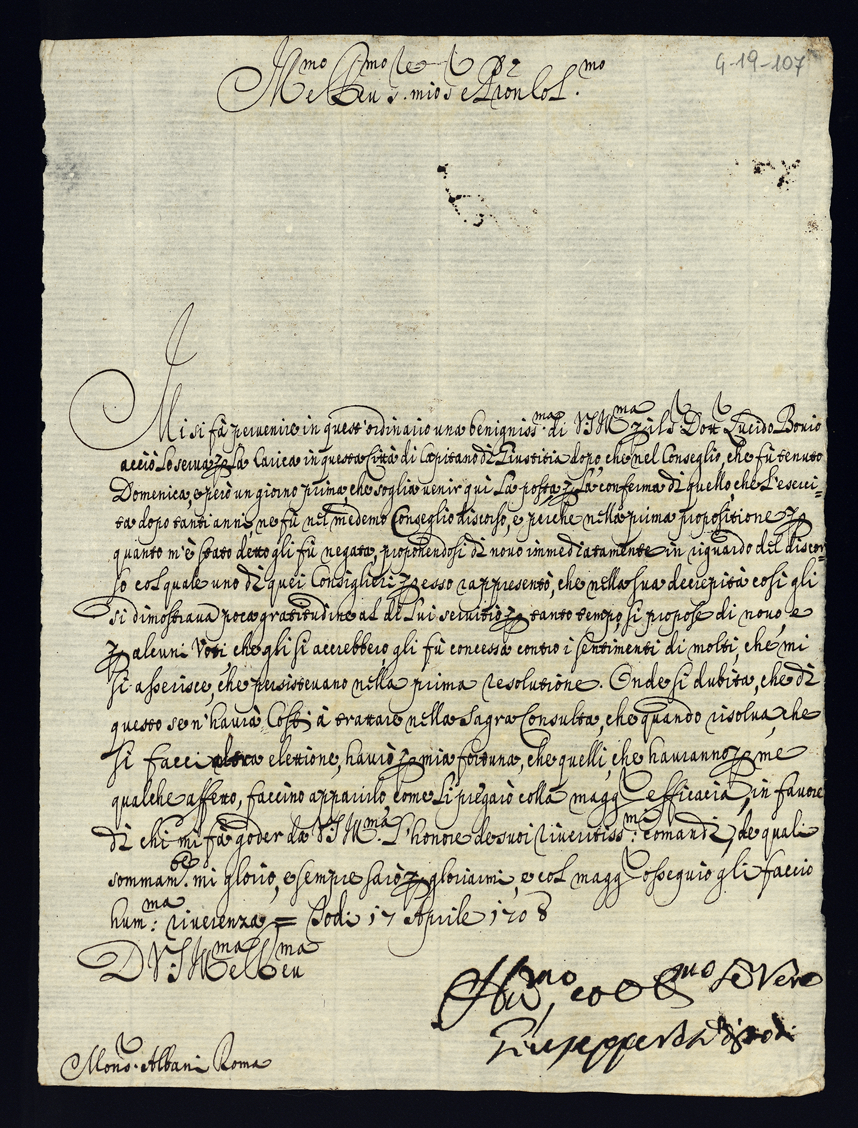 G-19-107
Ill.mo e Reu.mo Sig.r
mio Sig.re e Pron Col.mo
Mi si fà peruenire in quest'ordinario una benigniss.ma di V.S. Ill.ma p il S. Dott.r Lucido Bonio
acciò lo serua p la Carica in questa Città di Capitano di Giustitia dopo, che nel Conseglio, che fù tenuto
Domenica, e però un giorno prima, che soglia uenir qui la posta, p la conferma di quello, che l'eserci=
ta dopo tanti anni, ne fù nel medemo Conseglio discorso, e perche nella prima propositione p
quanto m'è stato detto gli fù negata, proponendosi di nouo immediatamente in riguardo del discor=
so col quale uno di quei Consiglieri p esso rappresentò, che nella sua decrepità così gli
si dimostraua poca gratitudine al di lui seruitio p tanto tempo, si propose di nouo, e
p alcuni Voti, che gli si accrebbero gli fù concessa contro i sentimenti di molti, che mi
si asserisce, che persisteuano nella prima resolutione. Onde si dubita, che di
questo se n'haurà costì à trattare nella Sagra Consulta, che quando risolua, che
si facci altra elettione, haurò p mia fortuna, che quelli, che hauranno p me
qualche affetto, faccino apparirlo, come li pregarò colla magg.r efficacia, in fauore
di chi mi fà goder da V.S. Ill.ma l'honore de suoi riueritiss.mi comandi, de quali
sommam.te mi glorio, e sempre sarò p gloriarmi, e col magg.r ossequio gli faccio
hum.ma riuerenza = Todi 17 Aprile 1708
D V.S. Ill.ma e Reu.ma
Mons.r Albani Roma
Hu.mo, et Obl.mo Se Vero
Giuseppe di Todi